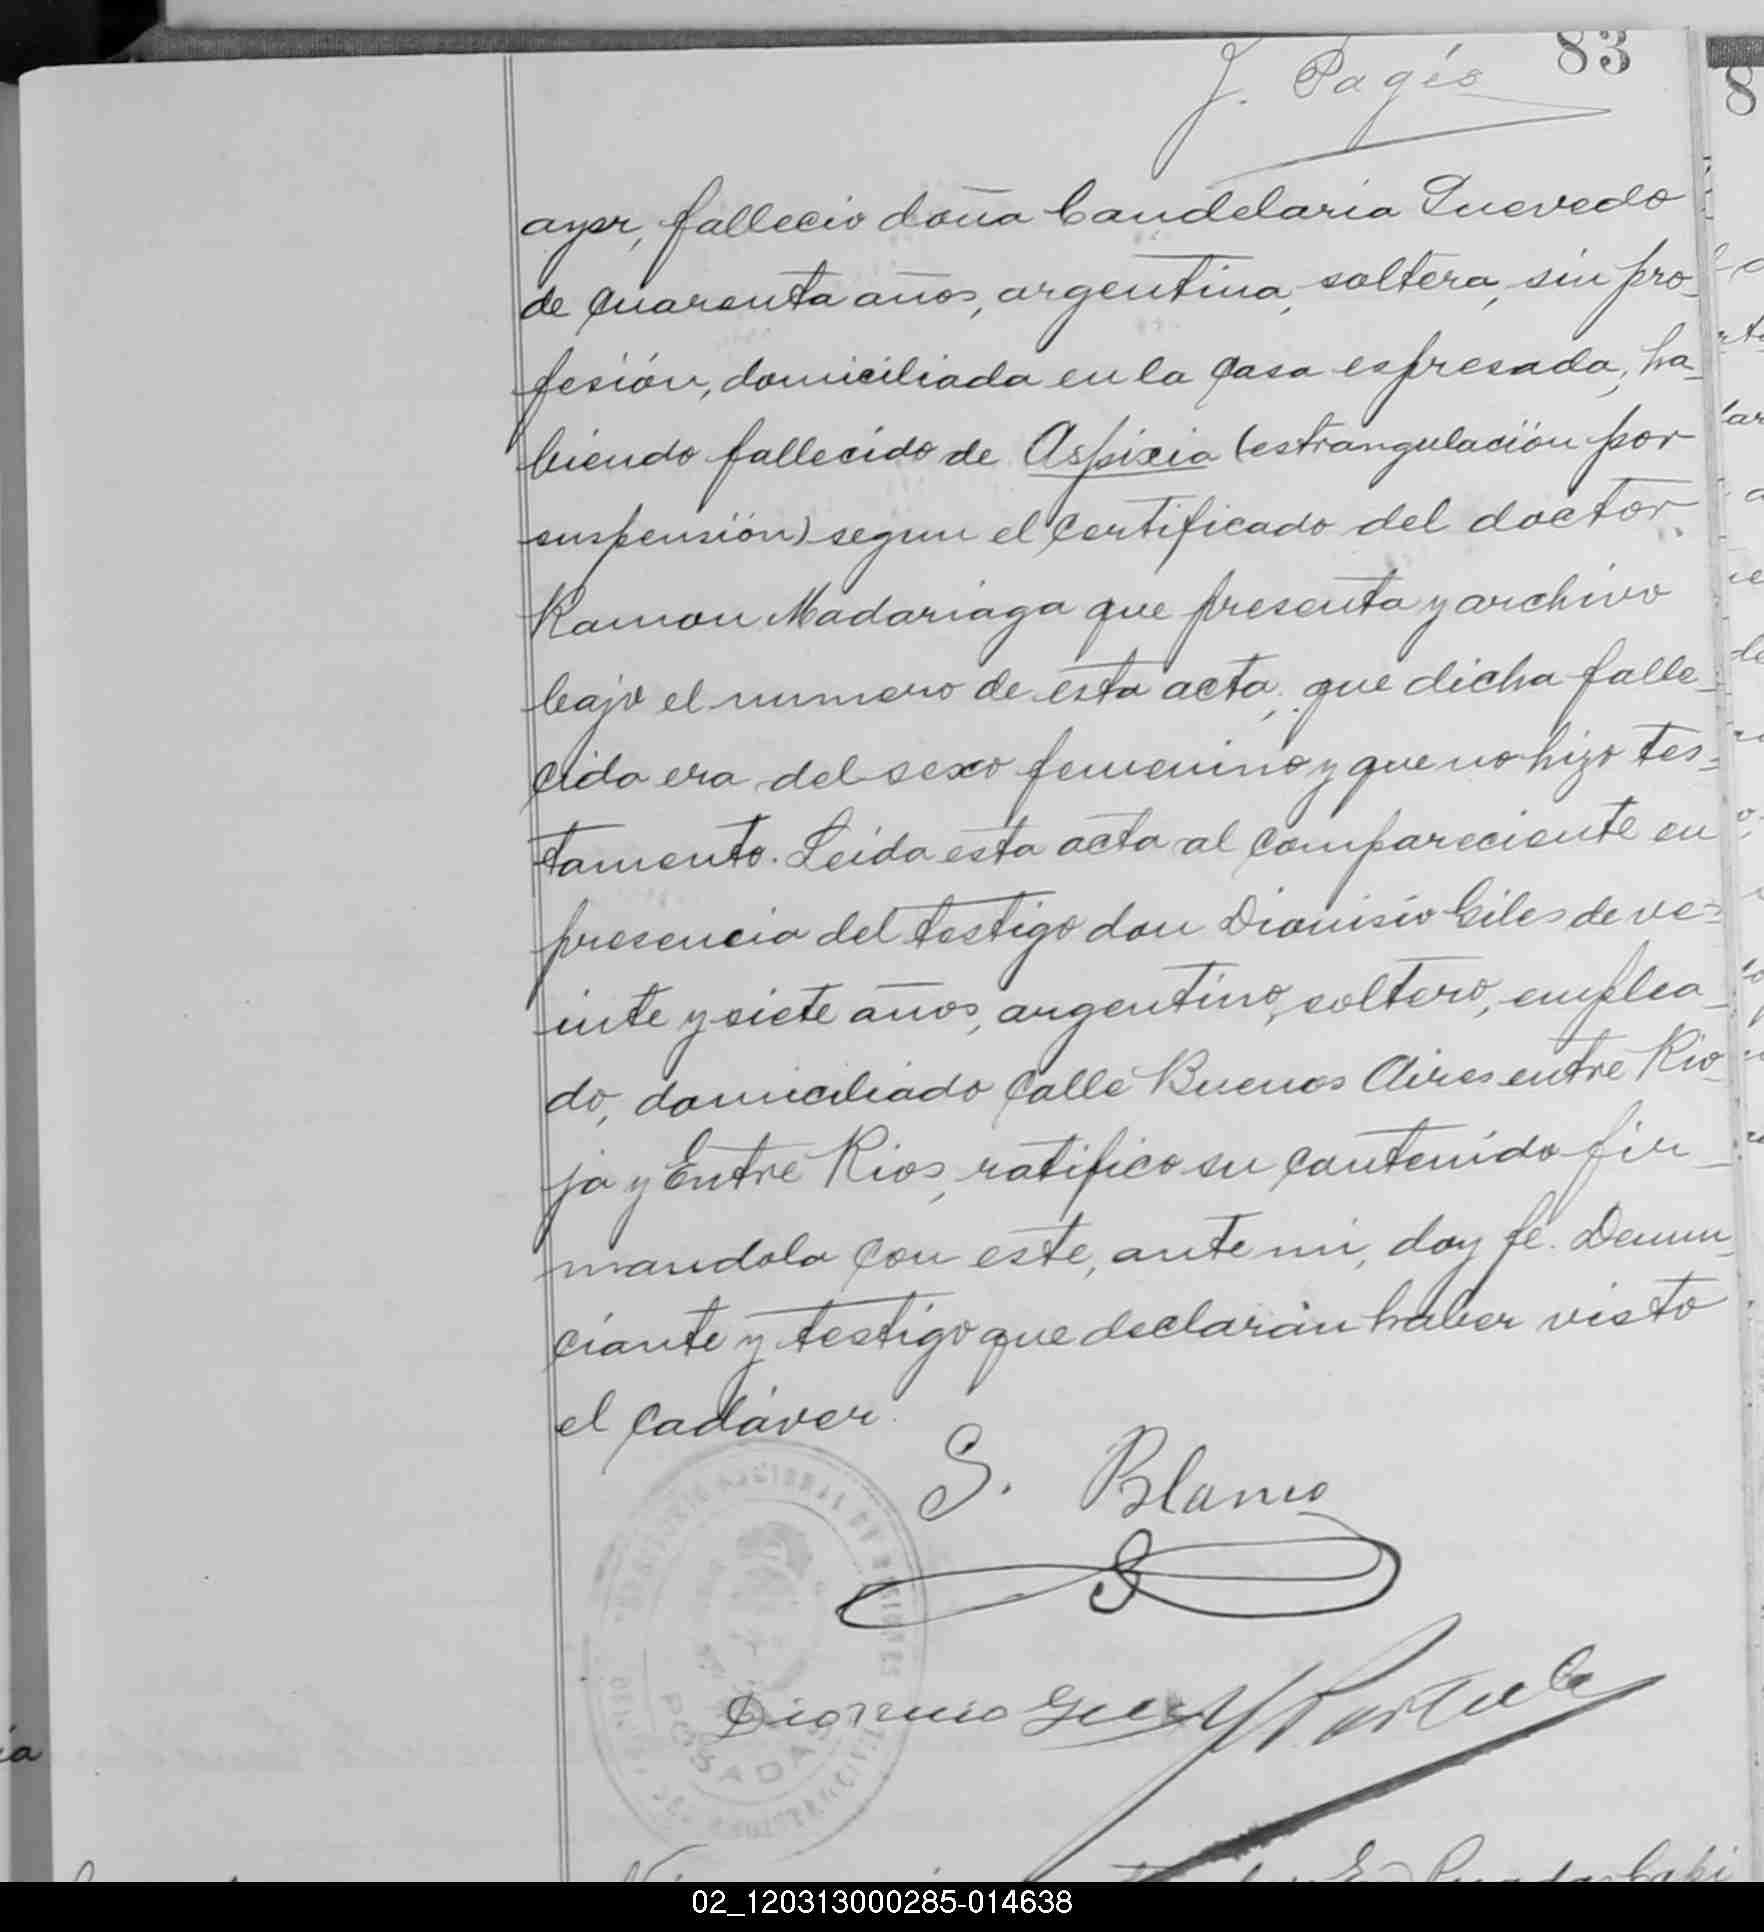 83
J. Pagés
ayer, fallecio doña Candelaria Quevedo
de cuarenta años, argentina, soltera, sin pro-
fesión, domiciliada en la casa espresada, ha-
biendo fallecido de Aspixia (estrangulación por
suspensión) segun el certificado del doctor
Ramon Madariaga que presenta y archivo
bajo el numero de esta acta, que dicha falle-
cida era del sexo femenino y que no hizo tes-
tamento. Leida esta acta al compareciente en
presencia del testigo don Dionisio Giles de ve-
inte y siete años, argentino, soltero, emplea-
do, domiciliado calle Buenos Aires entre Rio-
ja y Entre Rios, ratifico su contenido fir-
mandola con este, ante mi, doy fe. Denun-
ciante y testigo que declarán haber visto
el cadáver.
S. Blanco
Dionicio
POSADAS
02_120313000285-014638